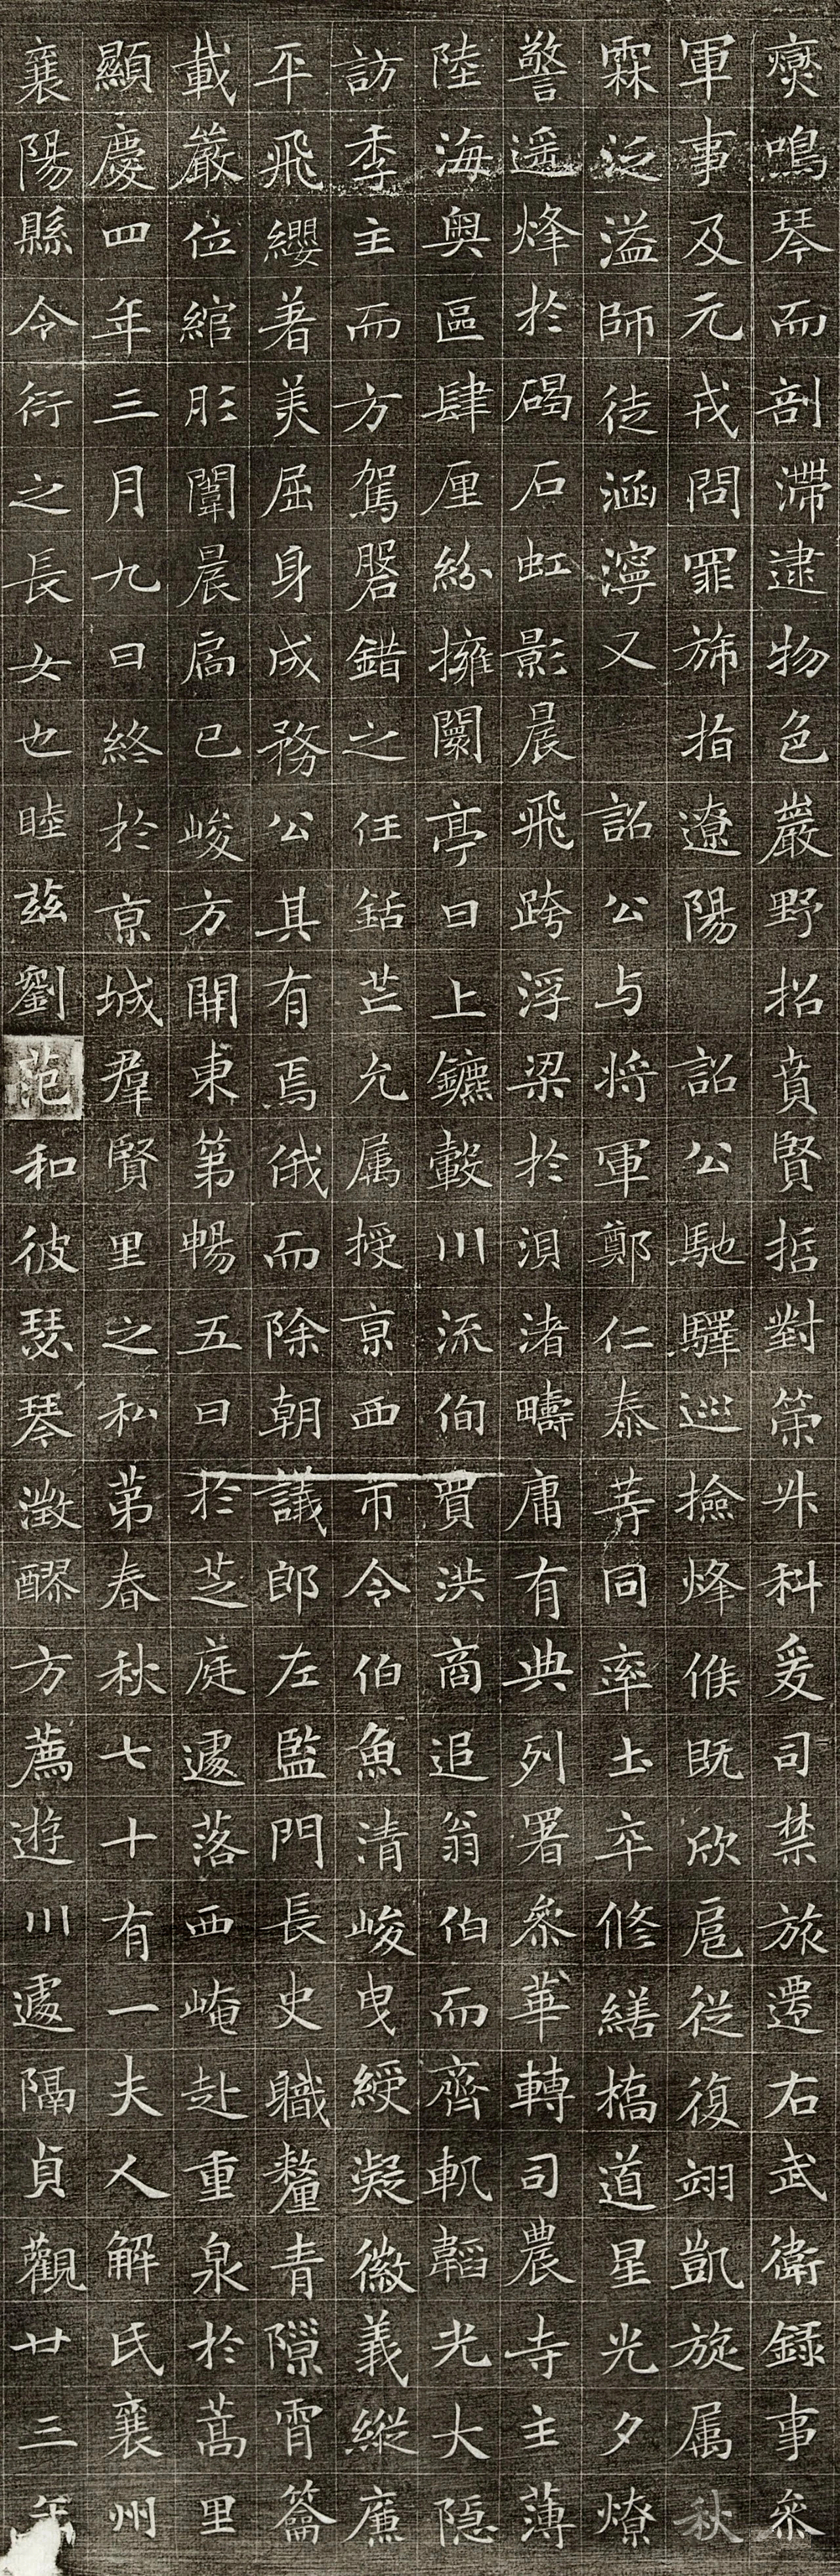 爕鳴琴而剖滯逮物色巖野招賁賢㧞對策升科爰司禁旅遷右武衛録事叅
軍事及元戎問罪斾指遼陽 詔公馳驛巡撿烽候既欣扈從復翊凱旋属秋
霖泛溢師徒涵濘又 詔公与將軍鄭仁泰等同率士卒修繕橋道星光夕燎
警遥烽於碣石虹影晨飛跨浮梁於浿渚疇庸有典列署叅華轉司農寺主薄
陸海奥區肆厘紛擁闤亭日上鑣轂川流佪賈洪商追翁伯而齊軌韜光大隐
訪季主而方駕盤錯之任銛芒允属授京西市令伯魚清峻曳綬凝徽義縱廉
平飛纓著美屈身成務公其有焉俄而除朝議郎左監門長史職釐青隙霄籥
載嚴位綰彤闈晨扃已峻方開東第暢五日於芝庭遽落西崦赴重泉於蒿里
顯慶四年三月九日終於京城羣賢里之私第春秋七十有一夫人解氏襄州
襄陽縣令衍之長女也睦兹劉范和彼瑟琴澂醪方薦遊川遽隔貞觀廿三年